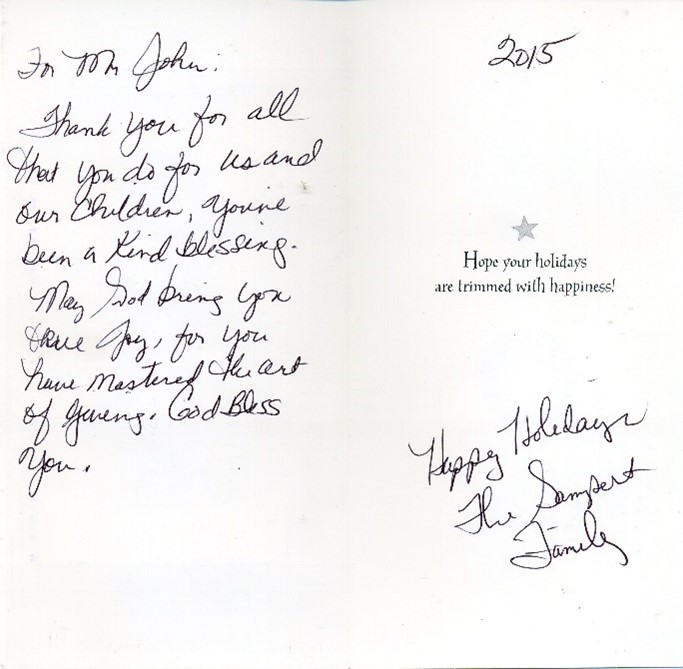 For Mr John:
Thank you for all
that you do for us and
our Children, you've
been a Kind blessing.
May God bring you
true Joy, for you
have mastered the art
of giving. God Bless
You.
2015
Hope your holidays
are trimmed with happiness!
Happy Holidays
The Sampert
Family